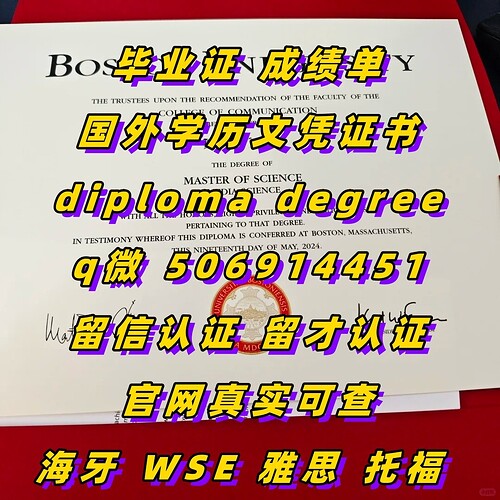 BOS 毕业证 成绩单 Y
THE TRUSTEES UPON THE RECOMMENDATION OF THE FACULTY OF THE
COLLEGE OF COMMUNICATION
国外学历文凭证书
THE DEGREE OF
MASTER OF SCIENCE
diploma degree
PERTAINING TO THAT DEGREE.
IN TESTIMONY WHEREOF THIS DIPLOMA IS CONFERRED AT BOSTON, MASSACHUSETTS,
THIS NINETEENTH DAY OF MAY, 2024.
q微 506914451
留信认证 留才认证
官网真实可查
海牙 WSE 雅思 托福